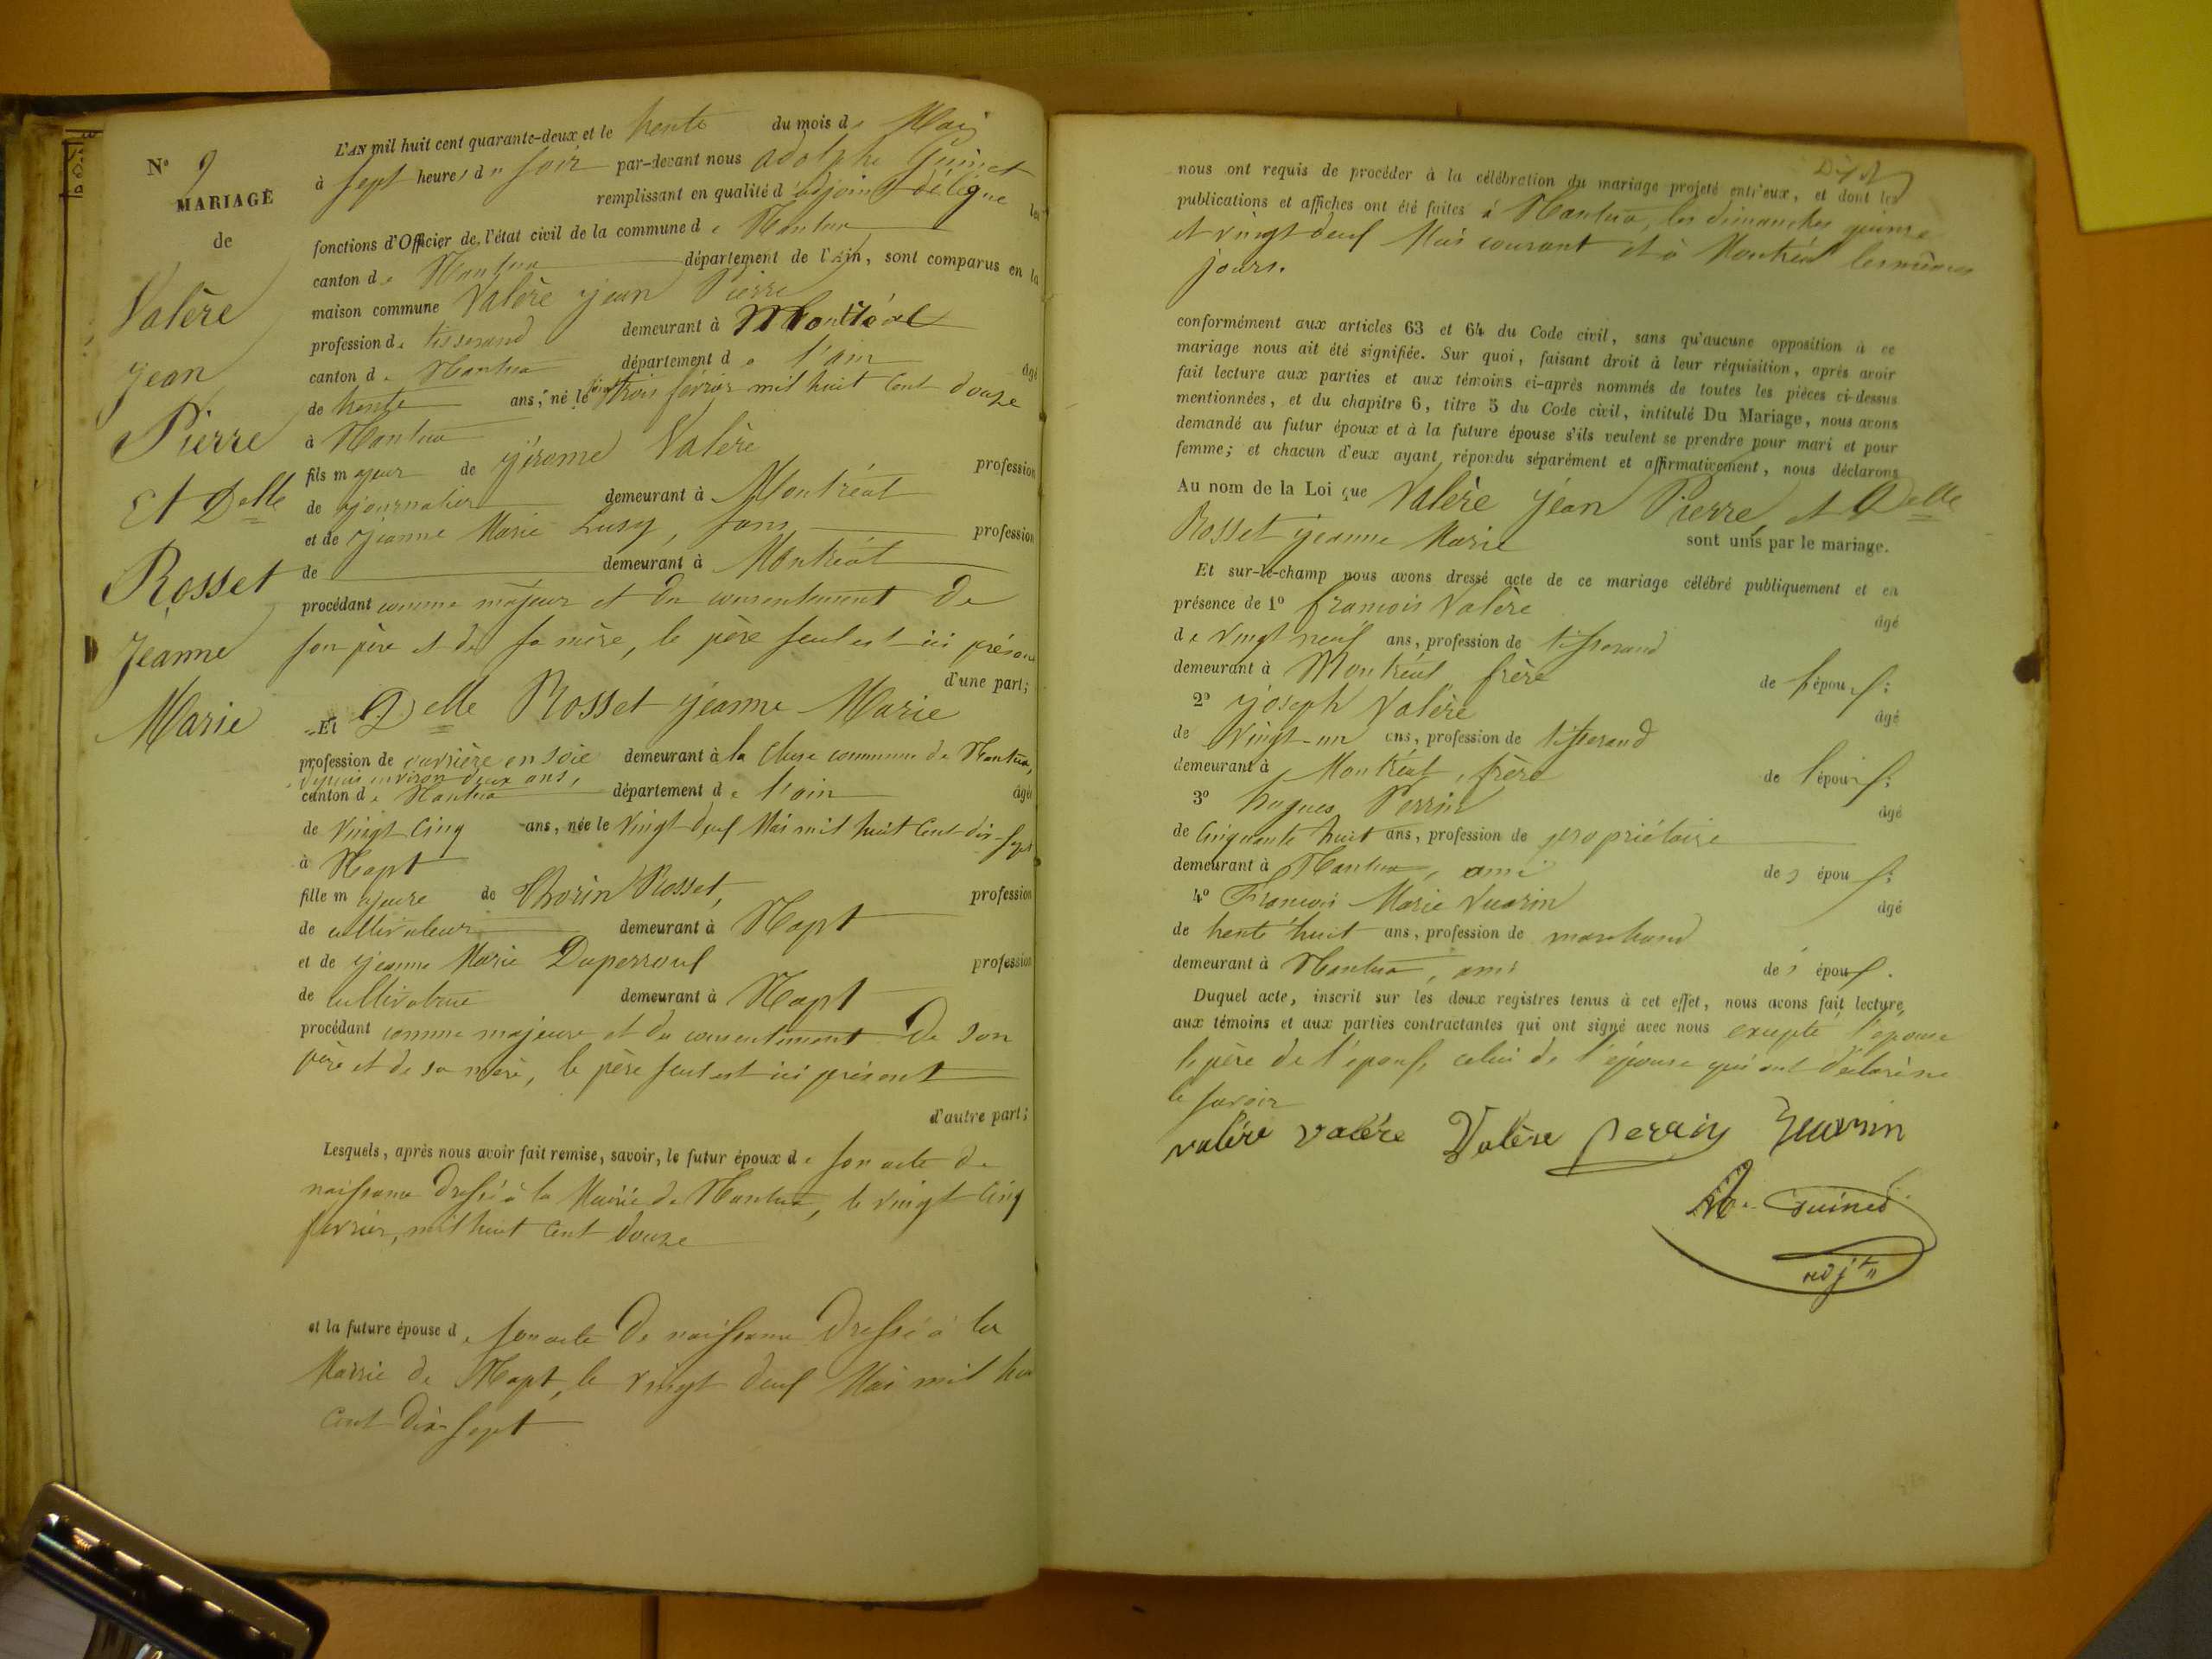 N° 9
MARIAGE
de
Valère
Jean
Pierre
Et Delle
Rosset
Jeanne
Marie
L'AN mil huit cent quarante-deux et le trente du mois de Mai
à sept heures du soir par-devant nous adolphe Guinet
remplissant en qualité d'adjoint délégué les
fonctions d'Officier de l'état civil de la commune de Nantua
canton de Nantua département de l'ain, sont comparus en la
maison commune Valère jean Pierre
profession de tisserand demeurant à Montréal
canton de Nantua département de l'ain âgé
de trente ans, né le vingt trois février mil huit cent douze
à Nantua
fils majeur de jérome Valère profession
de journalier demeurant à Montréal
et de jeanne Marie Lusy, sans profession
de demeurant à Montréal
procédant comme majeur et du consentement de
son père et de sa mère, le père seul est ici présent
d'une part;
Et Delle Rosset jeanne Marie
profession de ouvrière en soie demeurant à la Cluse commune de Nantua,
depuis environ deux ans,
canton de Nantua département de l'ain âgée
de vingt cinq ans, née le vingt deux Mai mil huit cent dix-sept
à Napt
fille majeure de Thorin Rosset, profession
de cultivateur demeurant à Napt
et de jeanne Marie Duperroux profession
de cultivatrice demeurant à Napt
procédant comme majeure et du consentement de son
père et de sa mère, le père seul est ici présent
d'autre part;
Lesquels, après nous avoir fait remise, savoir, le futur époux de son acte de
naissance dressé à la Mairie de Nantua, le vingt cinq
février, mil huit cent douze
et la future épouse de son acte de naissance dressé à la
Mairie de Napt, le vingt deux Mai mil huit
cent dix-sept
nous ont requis de procéder à la célébration du mariage projeté entr'eux, et dont les
publications et affiches ont été faites à Nantua, les dimanches quinze
et vingt deux Mai courant et à Montréal les mêmes
jours.
conformément aux articles 63 et 64 du Code civil, sans qu'aucune opposition à ce
mariage nous ait été signifiée. Sur quoi, faisant droit à leur réquisition, après avoir
fait lecture aux parties et aux témoins ci-après nommés de toutes les pièces ci-dessus
mentionnées, et du chapitre 6, titre 5 du Code civil, intitulé Du Mariage, nous avons
demandé au futur époux et à la future épouse s'ils veulent se prendre pour mari et pour
femme; et chacun d'eux ayant répondu séparément et affirmativement, nous déclarons
Au nom de la Loi que Valère jean Pierre, et Delle
Rosset jeanne Marie sont unis par le mariage.
Et sur-le-champ nous avons dressé acte de ce mariage célébré publiquement et en
présence de 1° françois Valère âgé
de vingt neuf ans, profession de tisserand
demeurant à Montréal, frère de l'époux;
2° joseph Valère âgé
de vingt-un ans, profession de tisserand
demeurant à Montréal, frère de l'époux;
3° hugues Perrin âgé
de cinquante huit ans, profession de propriétaire
demeurant à Nantua, ami des époux;
4° François Marie Vuarin âgé
de trente huit ans, profession de marchand
demeurant à Nantua, ami des époux.
Duquel acte, inscrit sur les deux registres tenus à cet effet, nous avons fait lecture,
aux témoins et aux parties contractantes qui ont signé avec nous excepté l'épouse
le père de l'époux, celui de l'épouse qui ont déclaré ne
le savoir
valére valére Valère perrin Vuarin
Ad. Guinet
adjt